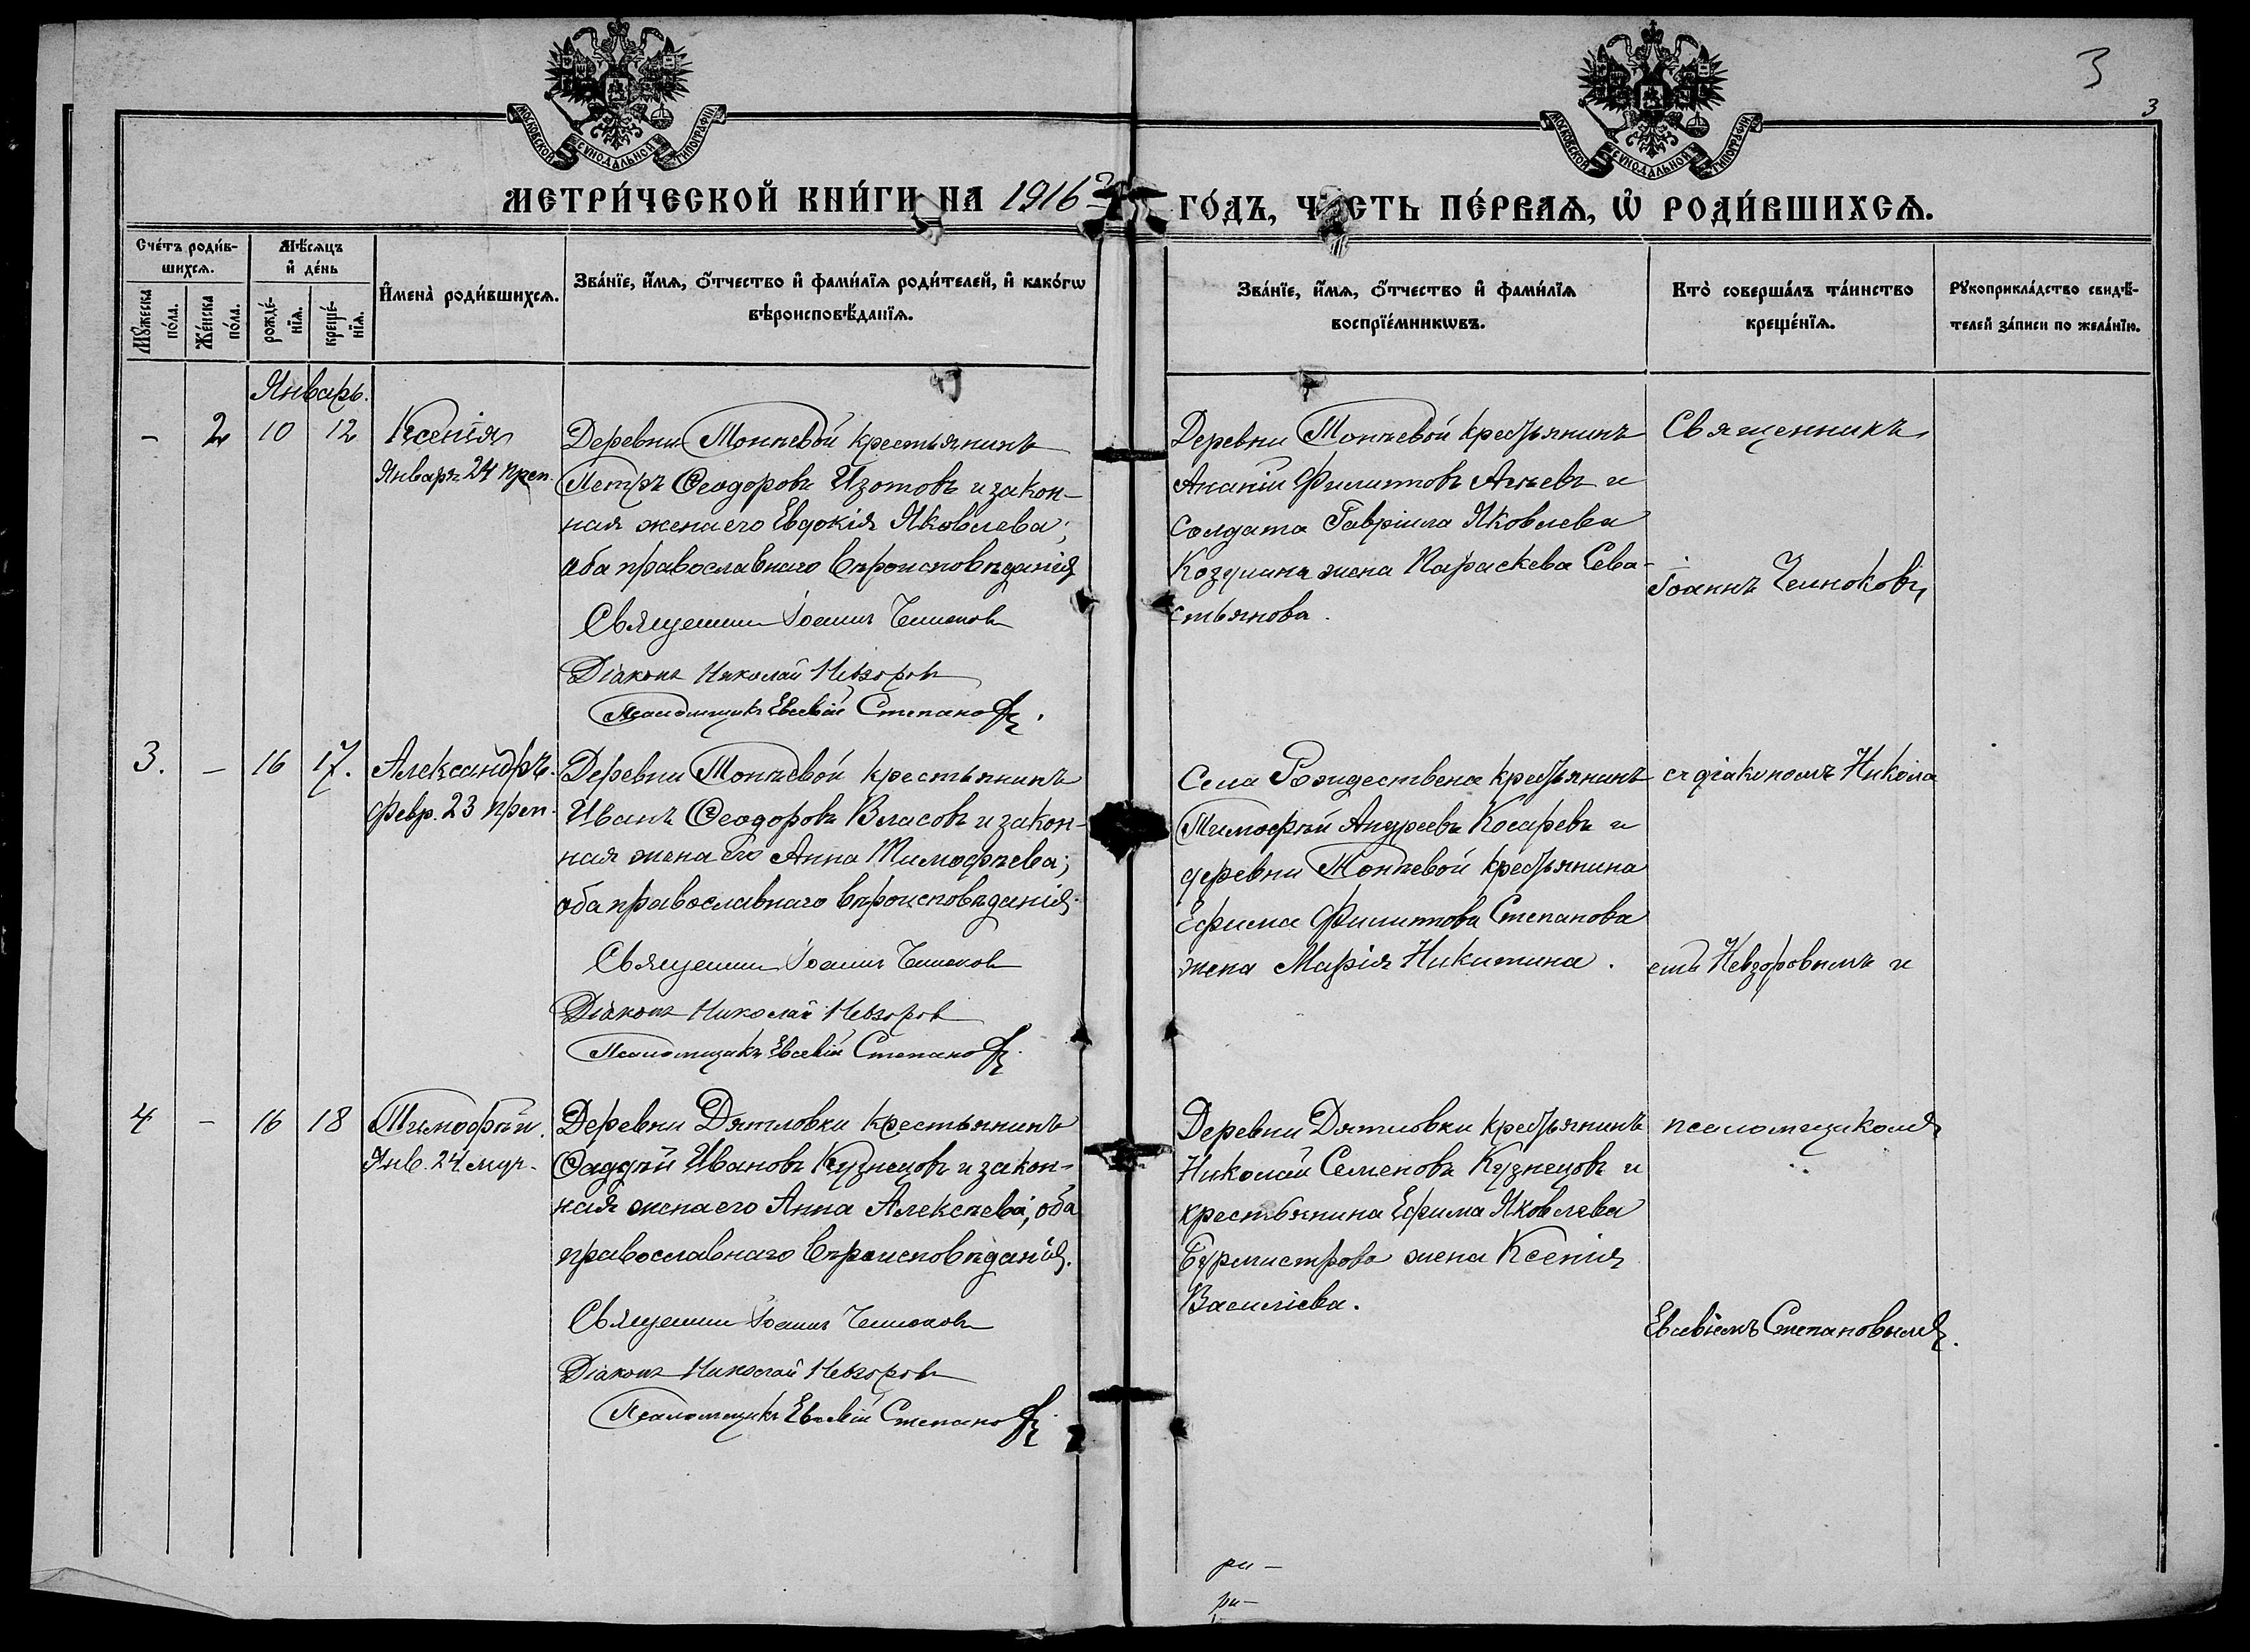 3
3
МОСКОВСКОЙ СѴНОДАЛЬНОЙ ТИПОГРАФІИ
МОСКОВСКОЙ СѴНОДАЛЬНОЙ ТИПОГРАФІИ
МЕТРИ́ЧЕСКОЙ КНИ́ГИ НА 1916 ГО́ДЪ, ЧАСТЬ ПЕ́РВАѦ, Ѡ҆ РОДИ́ВШИХСѦ.
Сче́тъ роди́в-
шихсѧ.
Мѣ́сѧцъ
и҆ де́нь
Мꙋ́жеска
по́ла.
Же́нска
по́ла.
рожде́-
нїѧ.
креще́-
нїѧ.
И҆мена̀ роди́вшихсѧ.
Зва́нїе, и҆́мѧ, ѻ҆́тчество и҆ фами́лїѧ роди́телей, и҆ како́гѡ
вѣроисповѣ́данїѧ.
Зва́нїе, и҆́мѧ, ѻ҆́тчество и҆ фами́лїѧ
воспрїе́мникѡвъ.
Кто̀ соверша́лъ та́инство
креще́нїѧ.
Рꙋкоприкла́дство свидѣ́-
телей за́писи по жела́нїю.
Январь.
- 2 10 12 Ксенія
Января 24 преп.
Деревни Монѣевой крестьянинъ
Петръ Ѳеодоровъ Изотовъ и закон-
ная жена его Евдокія Яковлева;
оба православнаго вѣроисповѣданія
Священникъ Іоаннъ Челноковъ
Діаконъ Николай Невзоровъ
Псаломщикъ Евсевій Степановъ.
Деревни Монѣевой крестьянинъ
Ананій Филипповъ и
солдата Гавріила Яковлева
жена Параскева Сева-
стьянова.
Священникъ
Іоаннъ Челноковъ
3. - 16 17. Александръ.
Февр. 23 преп.
Деревни Монѣевой крестьянинъ
Иванъ Ѳеодоровъ Власовъ и закон-
ная жена его Анна Тимофѣева;
оба православнаго вѣроисповѣданія.
Священникъ Іоаннъ Челноковъ
Діаконъ Николай Невзоровъ
Псаломщикъ Евсевій Степановъ.
Села Рождествена крестьянинъ
Тимофѣй Андреевъ Косаревъ и
деревни Монѣевой крестьянина
Ефима Филиппова Степанова
жена Марія Никитина.
съ діакономъ Никола
емъ Невзоровымъ и
4 - 16 18 Тимофѣй.
Янв. 24 муч.
Деревни Дятловки крестьянинъ
Ѳаддѣй Ивановъ Кузнецовъ и закон-
ная жена его Анна Алексѣева, оба
православнаго вѣроисповѣданія.
Священникъ Іоаннъ Челноковъ
Діаконъ Николай Невзоровъ
Псаломщикъ Евсевій Степановъ.
Деревни Дятловки крестьянинъ
Николай Семеновъ Кузнецовъ и
крестьянина Ефима Яковлева
Бурмистрова жена Ксенія
Василіева.
псаломщикомъ
Евсевіемъ Степановымъ.